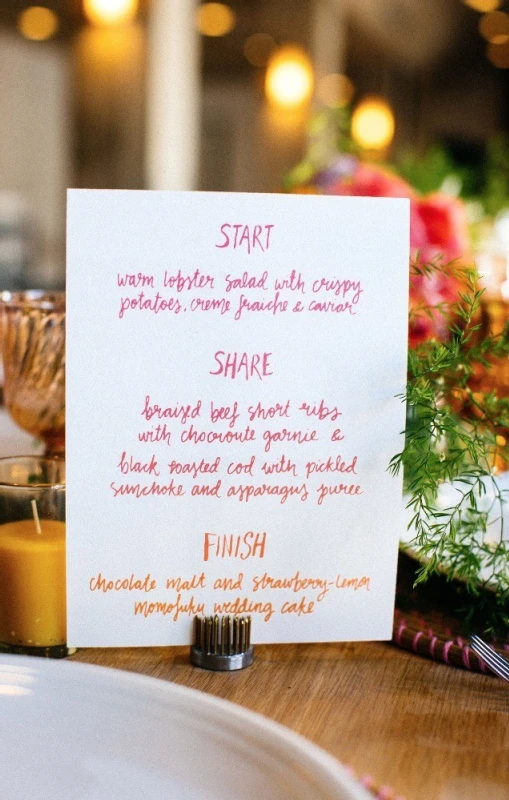 START
warm lobster salad with crispy
potatoes, creme fraiche & caviar
SHARE
braised beef short ribs
with chocroute garnie &
black roasted cod with pickled
sunchoke and asparagus puree
FINISH
chocolate malt and strawberry-lemon
momofuku wedding cake